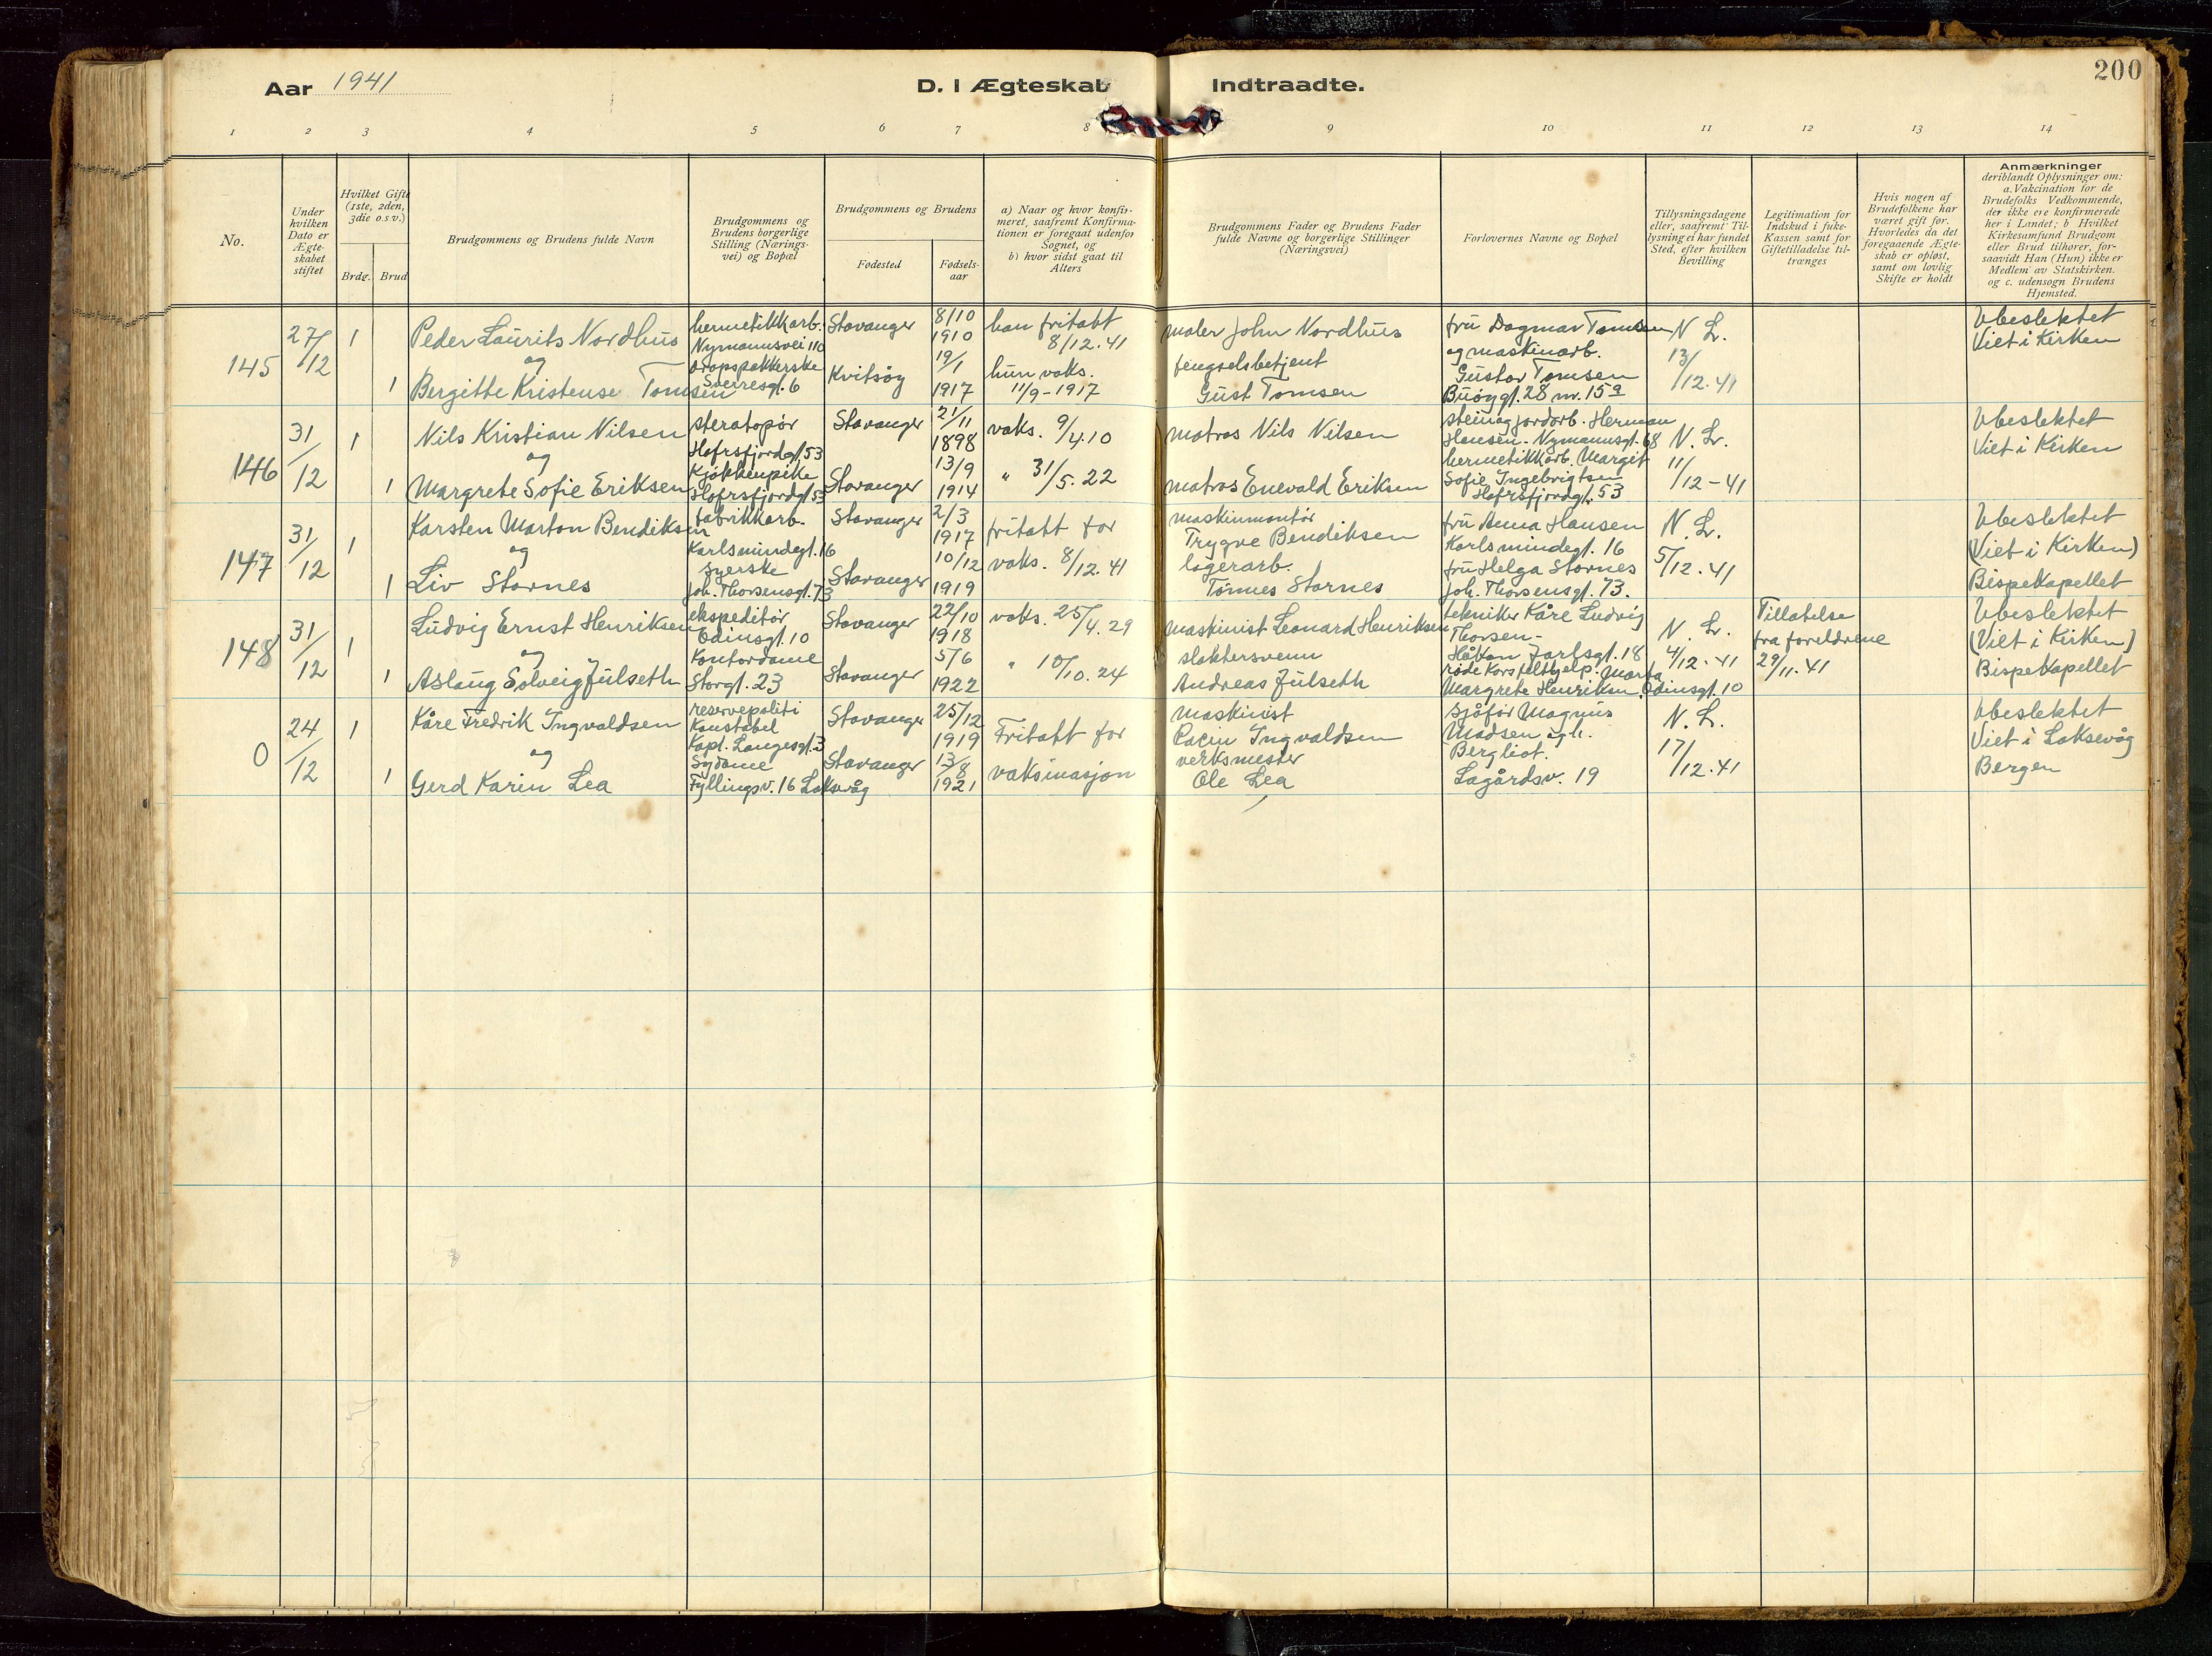 Aar 1941
D. I Ægteskab Indtraadte.
200
1 2 3 4 5 6 7 8 9 10 11 12 13 14
No.
Under
hvilken
Dato er
Ægte-
skabet
stiftet
Hvilket Gifte
(1ste, 2den,
3die o.s.v.)
Brdg. Brud
Brudgommens og Brudens fulde Navn
Brudgommens og
Brudens borgerlige
Stilling (Nærings-
vei) og Bopæl
Brudgommens og Brudens
Fødested
Fødsels-
aar
a) Naar og hvor konfir-
meret, saafremt Konfirma-
tionen er foregaat udenfor
Sognet, og
b) hvor sidst gaat til
Alters
Brudgommens Fader og Brudens Fader
fulde Navne og borgerlige Stillinger
(Næringsvei)
Forlovernes Navne og Bopæl
Tillysningsdagene
eller, saafremt Til-
lysning ei har fundet
Sted, efter hvilken
Bevilling
Legitimation for
Indskud i fuke-
Kassen samt for
Giftetilladelse til-
trænges
Hvis nogen af
Brudefolkene har
været gift før.
Hvorledes da det
foregaaende Ægte-
skab er opløst,
samt om lovlig
Skifte er holdt
Anmærkninger
deriblandt Oplysninger om:
a. Vakcination for de
Brudefolks Vedkommende,
der ikke ere konfirmerede
her i Landet; b Hvilket
Kirkesamfund Brudgom
eller Brud tilhører, for-
saavidt Han (Hun) ikke er
Medlem av Statskirken.
og c. udensogn Brudens
Hjemsted.
145
27/12
1
1
Peder Laurits Nordhus
og
Bergitte Kristense Tomsen
hermetikkarb.
Nymannsvei 110
dropspakkerske
Sverresgt. 6
Stavanger
Kvitsøy
8/10
1910
19/1
1917
han fritatt
8/12.41
hun vaks.
11/9-1917
maler John Nordhus
fengselsbetjent
Gust Tomsen
fru Dagmar Tomsen
og maskinarb.
Gustav Tomsen
Buøygt. 28 nr. 15a
N. L.
13/12.41
Ubeslektet
Viet i Kirken
146
31/12
1
1
Nils Kristian Nilsen
og
Margrete Sofie Eriksen
steratopør
Hafrsfjordgt. 53
Kjøkkenpike
Hafrsfjordgt. 53
Stavanger
Stavanger
21/11
1898
13/9
1914
vaks. 9/4.10
" 31/5.22
matros Nils Nilsen
matros Enevald Eriksen
stein og jordarb. Herman
Hansen. Nymannsgt. 68
hermetikkarb. Margit
Sofie Ingebrigtsen
Hafrsfjordgt. 53
N. L.
11/12-41
Ubeslektet
Viet i Kirken
147
31/12
1
1
Karsten Marton Bendiksen
og
Liv Stornes
fabrikkarb.
Karlsmindegt. 16
syerske
Joh. Thorsensgt. 73
Stavanger
Stavanger
2/3
1917
10/12
1919
fritatt for
vaks. 8/12.41
maskinmontør
Trygve Bendiksen
lagerarb.
Tønnes Stornes
fru Anna Hansen
Karlsmindegt. 16
fru Helga Stornes
Joh. Thorsensgt. 73.
N. L.
5/12.41
Ubeslektet
(Viet i Kirken)
Bispekapellet
148
31/12
1
1
Ludvig Ernst Henriksen
og
Aslaug Solveig Julseth
ekspeditør
Odinsgt. 10
Kontordame
Storgt. 23
Stavanger
Stavanger
22/10
1918
5/6
1922
vaks. 25/4.29
" 10/10.24
maskinist Leonard Henriksen
slaktersvenn
Andreas Julseth
tekniker Kåre Ludvig
Thorsen-
Håkon Jarlsgt. 18
røde Kors felthjelp. Marta
Margrete Henriksen, Odinsgt. 10
N. L.
4/12-41
Tillatelse
fra foreldrene
29/11.41
Ubeslektet
(Viet i Kirken)
Bispekapellet
0
24/12
1
1
Kåre Fredrik Ingvaldsen
og
Gerd Karin Lea
reservepoliti
Konstabel
Kapt. Langesgt. 3
Sydame
Fyllingsv. 16 Laksevåg
Stavanger
Stavanger
25/12
1919
13/8
1921
Fritatt for
vaksinasjon
maskinist
Ingvaldsen
verksmester
Ole Lea
sjåfør Magnus
Madsen og h.
Bergliot.
Lagårdsv. 19
N. L.
17/12.41
Ubeslektet
Viet i Laksevåg
Bergen